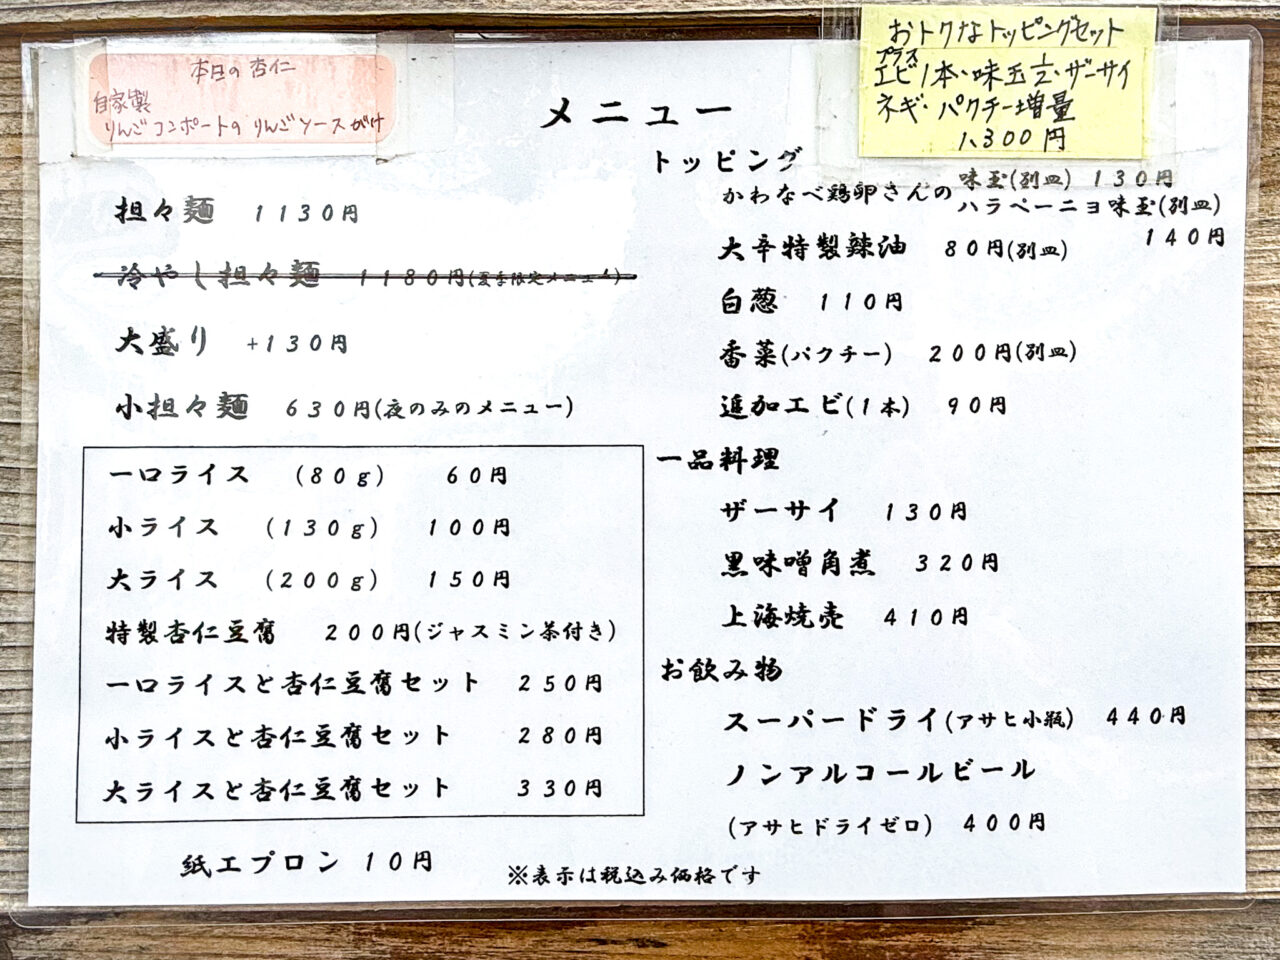 本日の杏仁
自家製
りんごコンポートの りんごソースがけ
おトクなトッピングセット
プラス
エビ1本・味玉1/2・ザーサイ
ネギ・パクチー増量
1,300円
メニュー
担々麺 1130円
冷やし担々麺 1180円(夏季限定メニュー)
大盛り +130円
小担々麺 630円(夜のみのメニュー)
一口ライス (80g) 60円
小ライス (130g) 100円
大ライス (200g) 150円
特製杏仁豆腐 200円(ジャスミン茶付き)
一口ライスと杏仁豆腐セット 250円
小ライスと杏仁豆腐セット 280円
大ライスと杏仁豆腐セット 330円
紙エプロン 10円
トッピング
かわなべ鶏卵さんの 味玉(別皿) 130円
ハラペーニョ味玉(別皿)
140円
大辛特製辣油 80円(別皿)
白葱 110円
香菜(パクチー) 200円(別皿)
追加エビ(1本) 90円
一品料理
ザーサイ 130円
黒味噌角煮 320円
上海焼売 410円
お飲み物
スーパードライ(アサヒ小瓶) 440円
ノンアルコールビール
(アサヒドライゼロ) 400円
※表示は税込み価格です